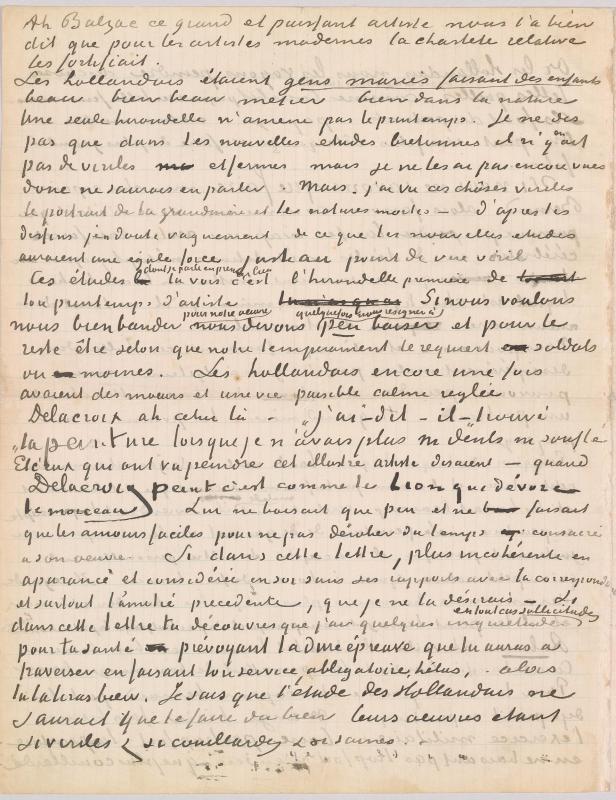 Ah Balzac ce grand et puissant artiste nous l'a bien
dit que pour les artistes modernes la chasteté relative
les fortifiait.
Les hollandais étaient gens mariés faisant des enfants
beau bien beau metier bien dans la nature
Une seule hirondelle n'amene pas le printemps. Je ne dis
pas que dans tes nouvelles etudes bretonnes il n'y en ait
pas de viriles et fermes mais je ne les ai pas encore vues
donc ne saurais en parler. Mais. j'ai vu ces choses viriles
le portrait de ta grandmère et les natures mortes – d'apres tes
dessins je me doute vaguement de ce que tes nouvelles etudes
auraient une egale force juste au point de vue viril
Ces études dont je parle en premier lieu tu vois c'est l'hirondelle premiere de
ton printemps d'artiste Si nous voulons
nous bien bander pour notre oeuvre nous devons quelquefois nous resigner à peu baiser et pour le
reste être selon que notre temperament le requiert soldats
ou moines. Les hollandais encore une fois
avaient des moeurs et une vie paisible calme reglée
Delacroix ah celui là – "j'ai – dit – il – trouvé
"la peinture lorsque je n'avais plus ni dents ni souffle
Et ceux qui ont vu peindre cet illustre artiste disaient – quand
Delacroix peint c'est comme le lion qui dévore
le morceau Lui ne baisait que peu et ne faisait
que les amours faciles pour ne pas dérober du temps consacré
a son oeuvre. Si dans cette lettre, plus incohérente en
aparance et considérée en soi sans ses rapports avec la correspondance
et surtout l'amitié precedente, que je ne la désirais – Si
dans cette lettre tu decouvres que j'ai quelques inquietudes en tout cas sollicitudes
pour ta santé prévoyant la dure épreuve que tu auras a
traverser en faisant ton service, obligatoire, hélas, – alors
tu la liras bien. Je sais que l'étude des Hollandais ne
saurait que te faire du bien leurs oeuvres etant
si viriles & si couillardes & si saines